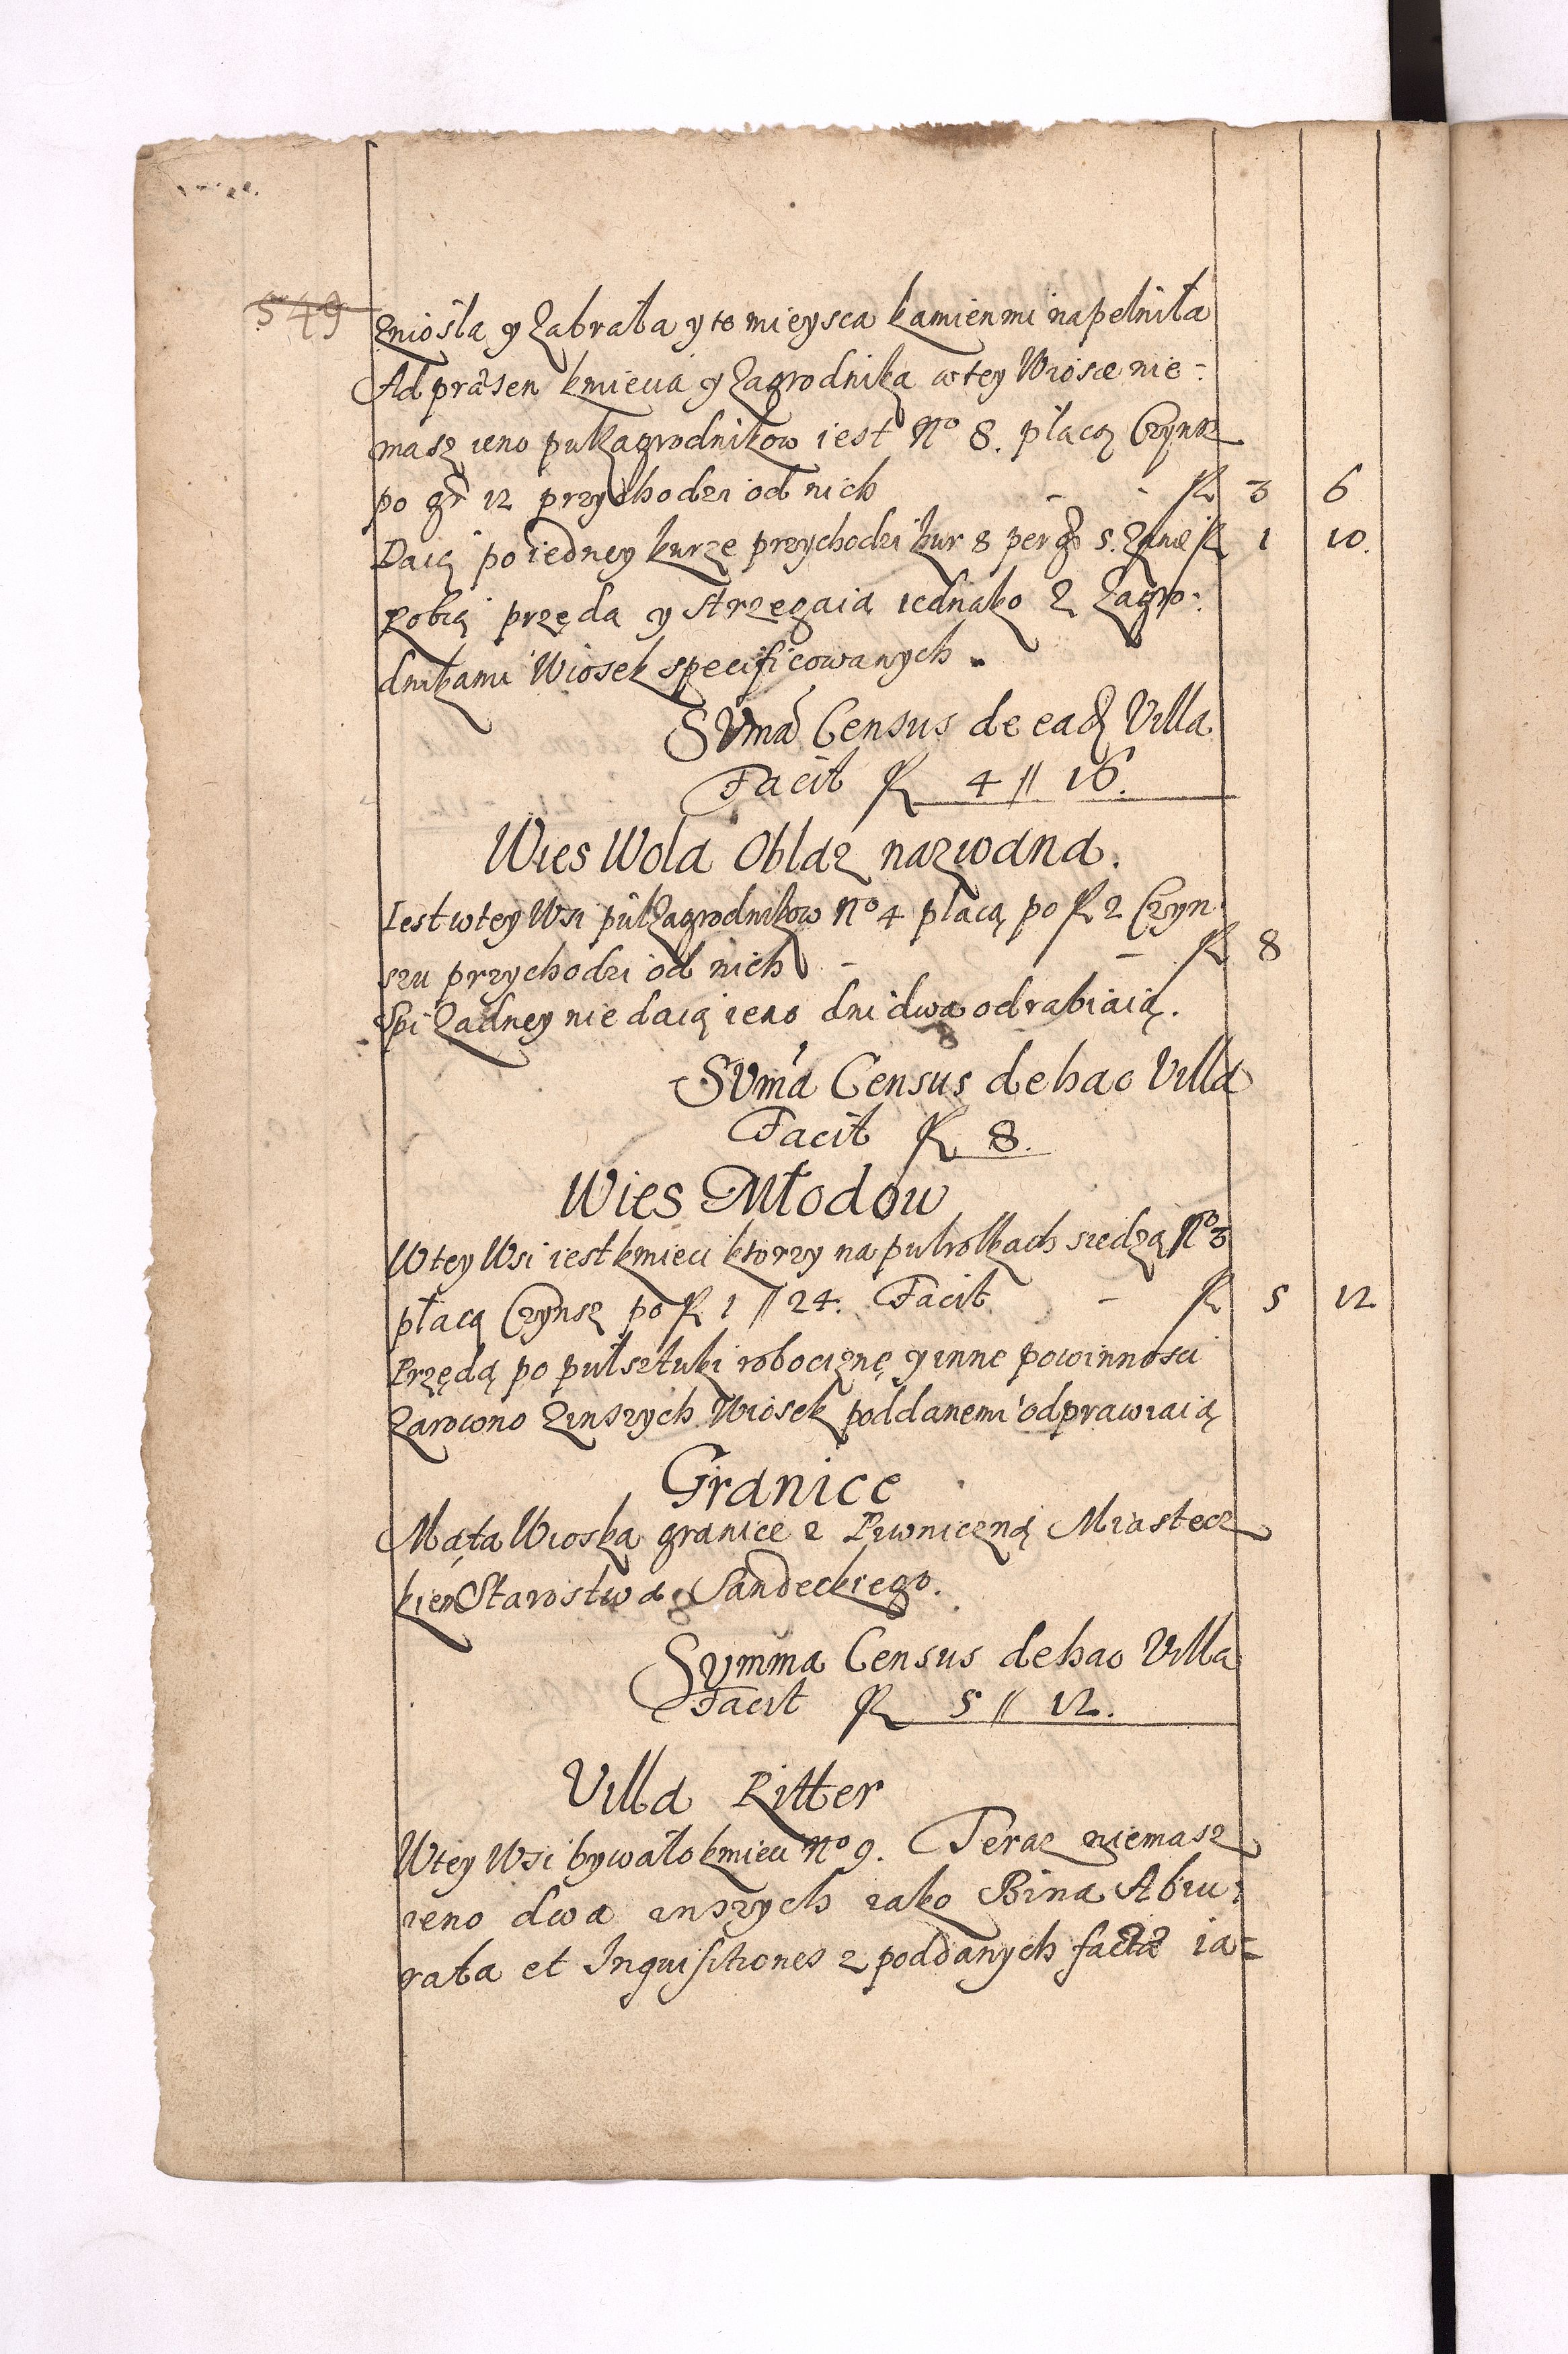 549
zniosła y zabrała y te mieysca kamienmi napełniła
Ad præsen kmiecia y zagrodnika w tey Wiosce nie=
masz ieno pułzagrodnikow iest No 8. płacą Czynsz
po gr 12 przychodzi od nich - - fl 3 6
Daią po iedney kurze przychodzi kur 8 per gr 5. fl 1 10.
Robią przędą y strzegaią iednako z Zagro=
dnikami Wiosek specificowanych.
Suma Census de ead Villa
Facit fl 4 // 16.
Wies Wola Oblaz nazwana.
Iest w tey Wsi pułzagrodnikow No 4 płacą po fl 2 Czyn
szu przychodzi od nich - - fl 8
Spi Zadney nie daią ieno dni dwa odrabiaią.
Suma Census de hac Villa
Facit fl 8.
Wies Młodow
W tey Wsi iest kmieci ktorzy na pulrolkach siedzą No 3
płacą Czynsz po fl 1 // 24. Facit - fl 5 12
Przędą po pułsztuki robociznę y inne powinnosci
zarowno z inszych Wiosek poddanemi odprawiaią
Granice
Ma ta Wioska granice z Piwniczną Miastecz
kiem Starostwa Sandeckiego.
Summa Census de hac Villa
Facit fl 5 // 12.
Villa Ritter
W tey Wsi bywało kmieci No 9. Teraz niemasz
ieno dwa inszych iako Bina Abiu=
rata et Inquisitiones z poddanych factæ ia=